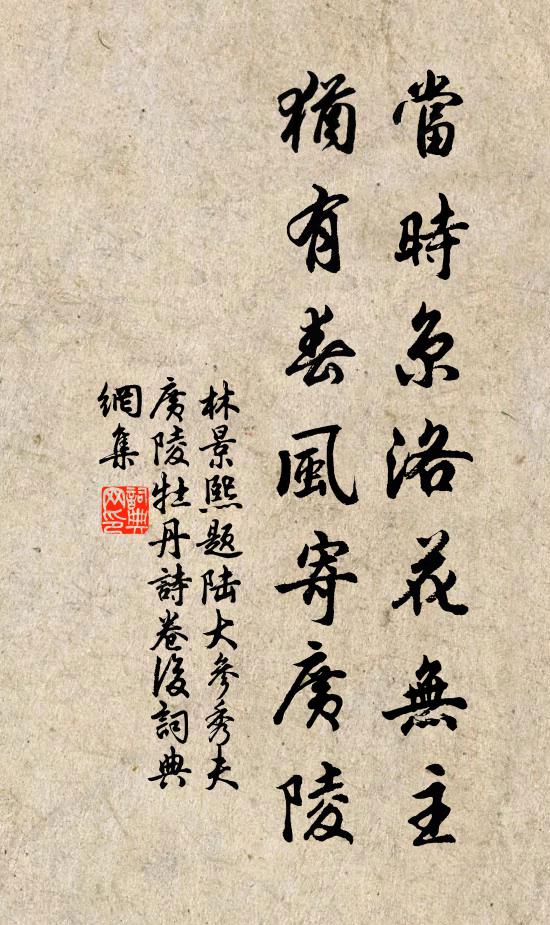 當時京洛花無主
猶有春風寄廣陵
林景熙題陸大參秀夫
廣陵牡丹詩卷後詞典
網集
詞典网印